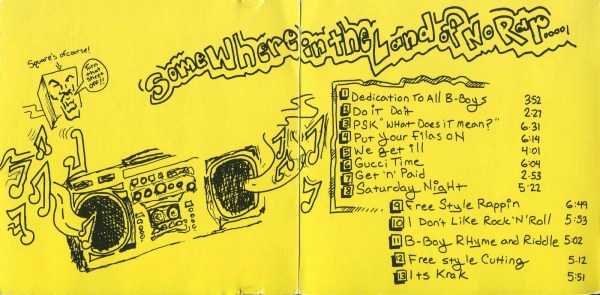 Square's of course!
Turn that sheet OFF!!
Some Where in the Land of No Rap.....!
1 Dedication To All B-Boys 3:52
2 Do it Do it 2:27
3 PSK "What Does iT Mean?" 6:31
4 Put Your Filas ON 6:14
5 We get ill 4:01
6 Gucci Time 6:04
7 Get 'n' Paid 2:53
8 Saturday Night 5:22
9 Free Style Rappin 6:49
10 I Don't Like Rock 'N' Roll 5:53
11 B-Boy RHyme and Riddle 5:02
12 Free style Cutting 5:12
13 Its Krak 5:51